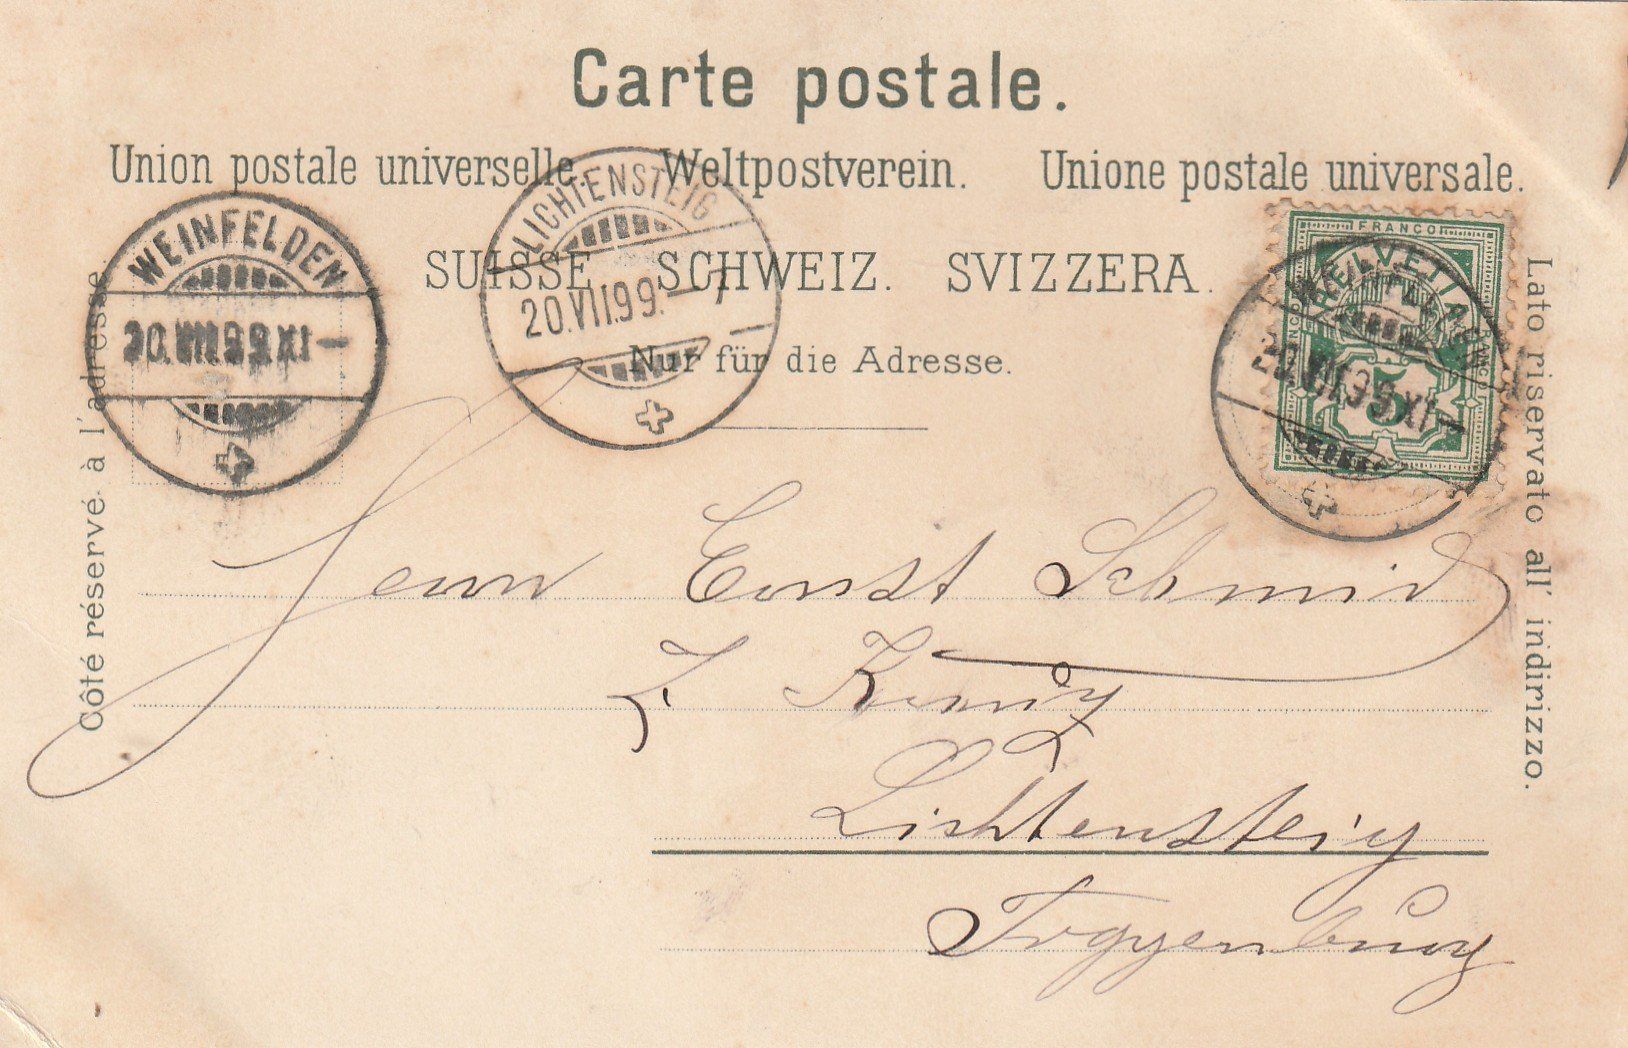 Carte postale.
Union postale universelle. Weltpostverein. Unione postale universale.
SUISSE. SCHWEIZ. SVIZZERA.
Nur für die Adresse.
Côté réservé à l'adresse.
Lato riservato all' indirizzo.
WEINFELDEN
LICHTENSTEIG
20.VII.99.-7
FRANCO
HELVETIA
5
XI-
Herrn Ernst Schmid
z. Kreuz
Lichtensteig
Toggenburg